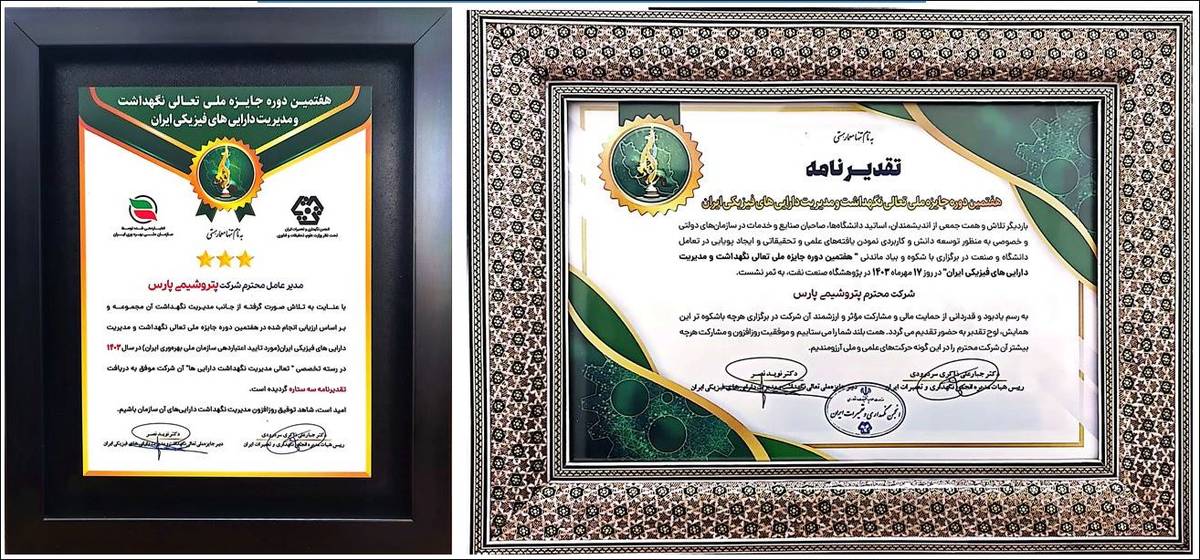 هفتمین دوره جایزه ملی تعالی نگهداشت
و مدیریت دارایی های فیزیکی ایران
انجمن نگهداری و تعمیرات ایران
تحت نظر وزارت علوم، تحقیقات و فناوری
اعتباردهی شده توسط
سازمان ملی بهره وری ایران
به نام تنها معمار هستی
مدیر عامل محترم شرکت پتروشیمی پارس
با عنایت به تلاش صورت گرفته از جانب مدیریت نگهداشت آن مجموعه و
بر اساس ارزیابی انجام شده در هفتمین دوره جایزه ملی تعالی نگهداشت و مدیریت
دارایی های فیزیکی ایران(مورد تایید اعتباردهی سازمان ملی بهره‌وری ایران) در سال ۱۴۰۳
در رسته تخصصی " تعالی مدیریت نگهداشت دارایی ها" آن شرکت موفق به دریافت
تقدیرنامه سه ستاره گردیده است.
امید است، شاهد توفیق روزافزون مدیریت نگهداشت دارایی‌های آن سازمان باشیم.
دکتر جبارعلی ذاکری سردرودی
رییس هیات مدیره انجمن نگهداری و تعمیرات ایران
دکتر نوید نصر
دبیر جایزه ملی تعالی نگهداشت و مدیریت دارایی های فیزیکی ایران
به نام تنها معمار هستی
تقدیرنامه
هفتمین دوره جایزه ملی تعالی نگهداشت و مدیریت دارایی های فیزیکی ایران
باردیگر تلاش و همت جمعی از اندیشمندان، اساتید دانشگاه‌ها، صاحبان صنایع و خدمات در سازمان‌های دولتی
و خصوصی به منظور توسعه دانش و کاربردی نمودن یافته‌های علمی و تحقیقاتی و ایجاد پویایی در تعامل
دانشگاه و صنعت در برگزاری با شکوه و بیاد ماندنی " هفتمین دوره جایزه ملی تعالی نگهداشت و مدیریت
دارایی های فیزیکی ایران" در روز ۱۷ مهرماه ۱۴۰۳ در پژوهشگاه صنعت نفت، به ثمر نشست.
شرکت محترم پتروشیمی پارس
به رسم یادبود و قدردانی از حمایت مالی و مشارکت مؤثر و ارزشمند آن شرکت در برگزاری هرچه باشکوه تر این
همایش، لوح تقدیر به حضور تقدیم می گردد. همت بلند شما را می ستاییم و موفقیت روزافزون و مشارکت هرچه
بیشتر آن شرکت محترم را در این گونه حرکت‌های علمی و ملی آرزومندیم.
دکتر جبارعلی ذاکری سردرودی
رییس هیات مدیره انجمن نگهداری و تعمیرات ایران
دکتر نوید نصر
دبیر جایزه ملی تعالی نگهداشت و مدیریت دارایی های فیزیکی ایران
انجمن نگهداری و تعمیرات ایران